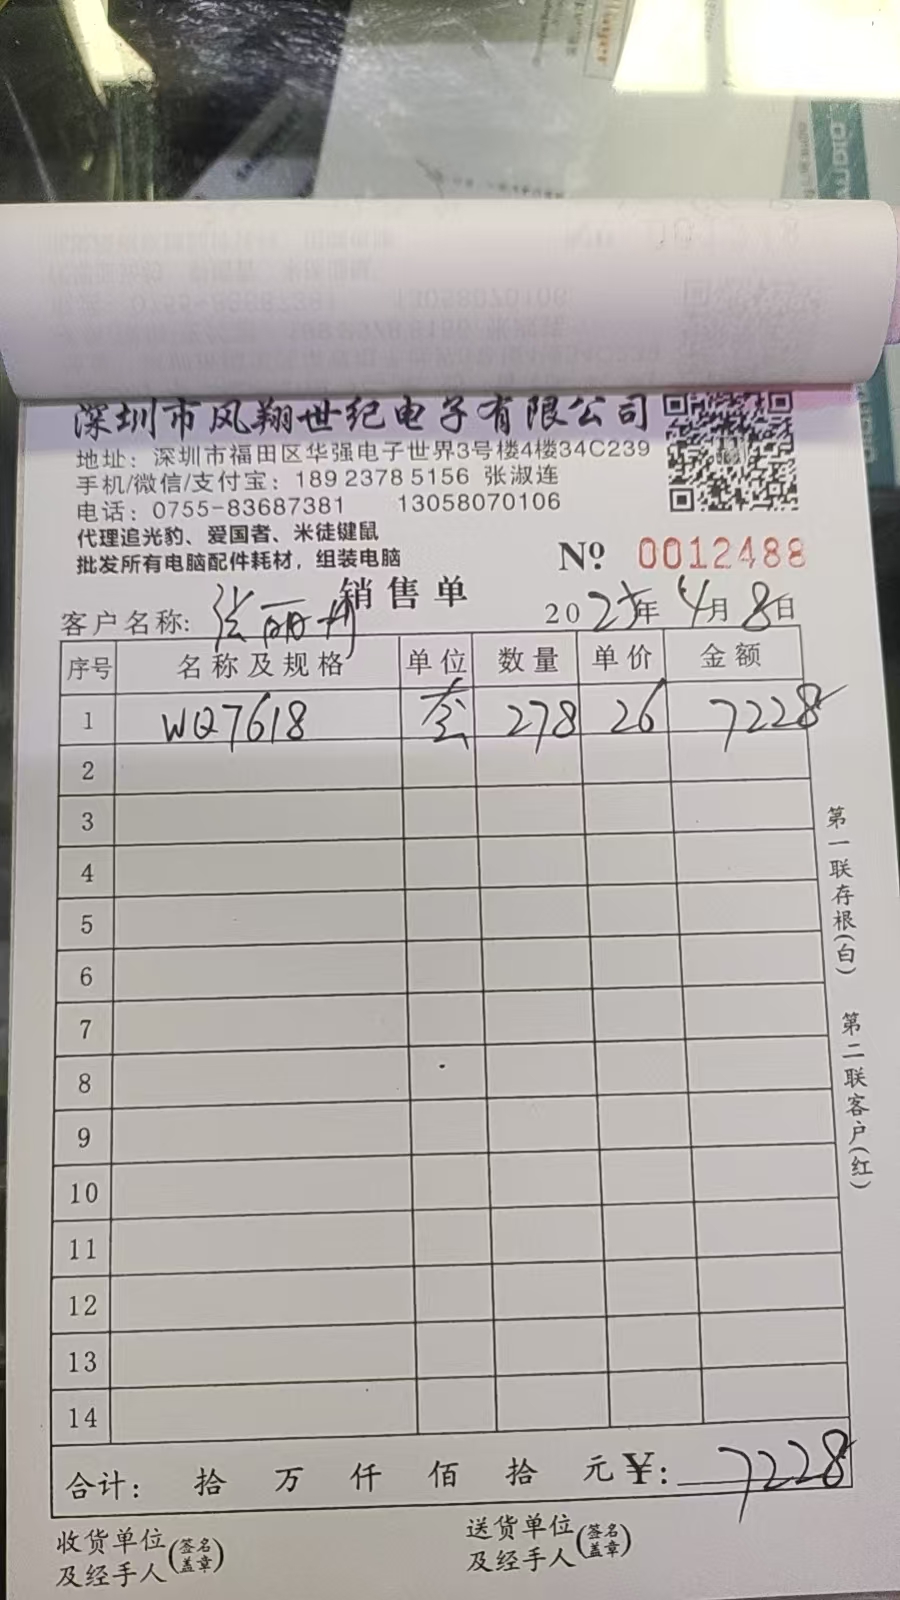 深圳市风翔世纪电子有限公司
地址：深圳市福田区华强电子世界3号楼4楼34C239
手机/微信/支付宝：189 2378 5156 张淑连
电话：0755-83687381 13058070106
代理追光豹、爱国者、米徒键鼠
批发所有电脑配件耗材，组装电脑
№ 0012488
销售单
客户名称: 张丽 2025年4月8日
序号 名称及规格 单位 数量 单价 金额
1 WQ7618 套 278 26 7228
2
3
4
5
6
7
8
9
10
11
12
13
14
合计： 拾 万 仟 佰 拾 元¥: 7228
收货单位及经手人(签名盖章)
送货单位及经手人(签名盖章)
第一联存根(白) 第二联客户(红)